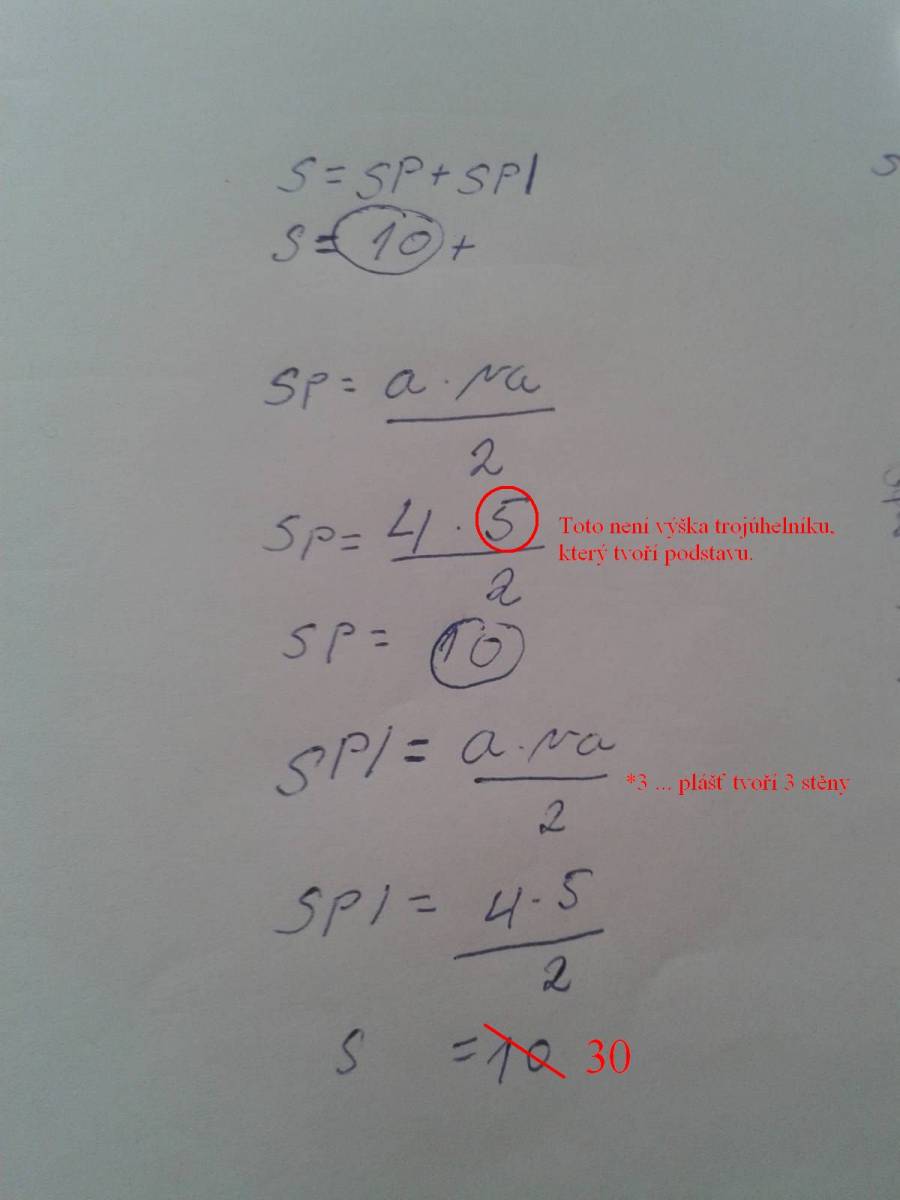 S = SP + SPl
S = 10 +
SP = a · va
2
SP = 4 · 5
Toto není výška trojúhelníku,
který tvoří podstavu.
2
SP = 10
SPl = a · va
*3 ... plášť tvoří 3 stěny
2
SPl = 4 · 5
2
S = 10 30